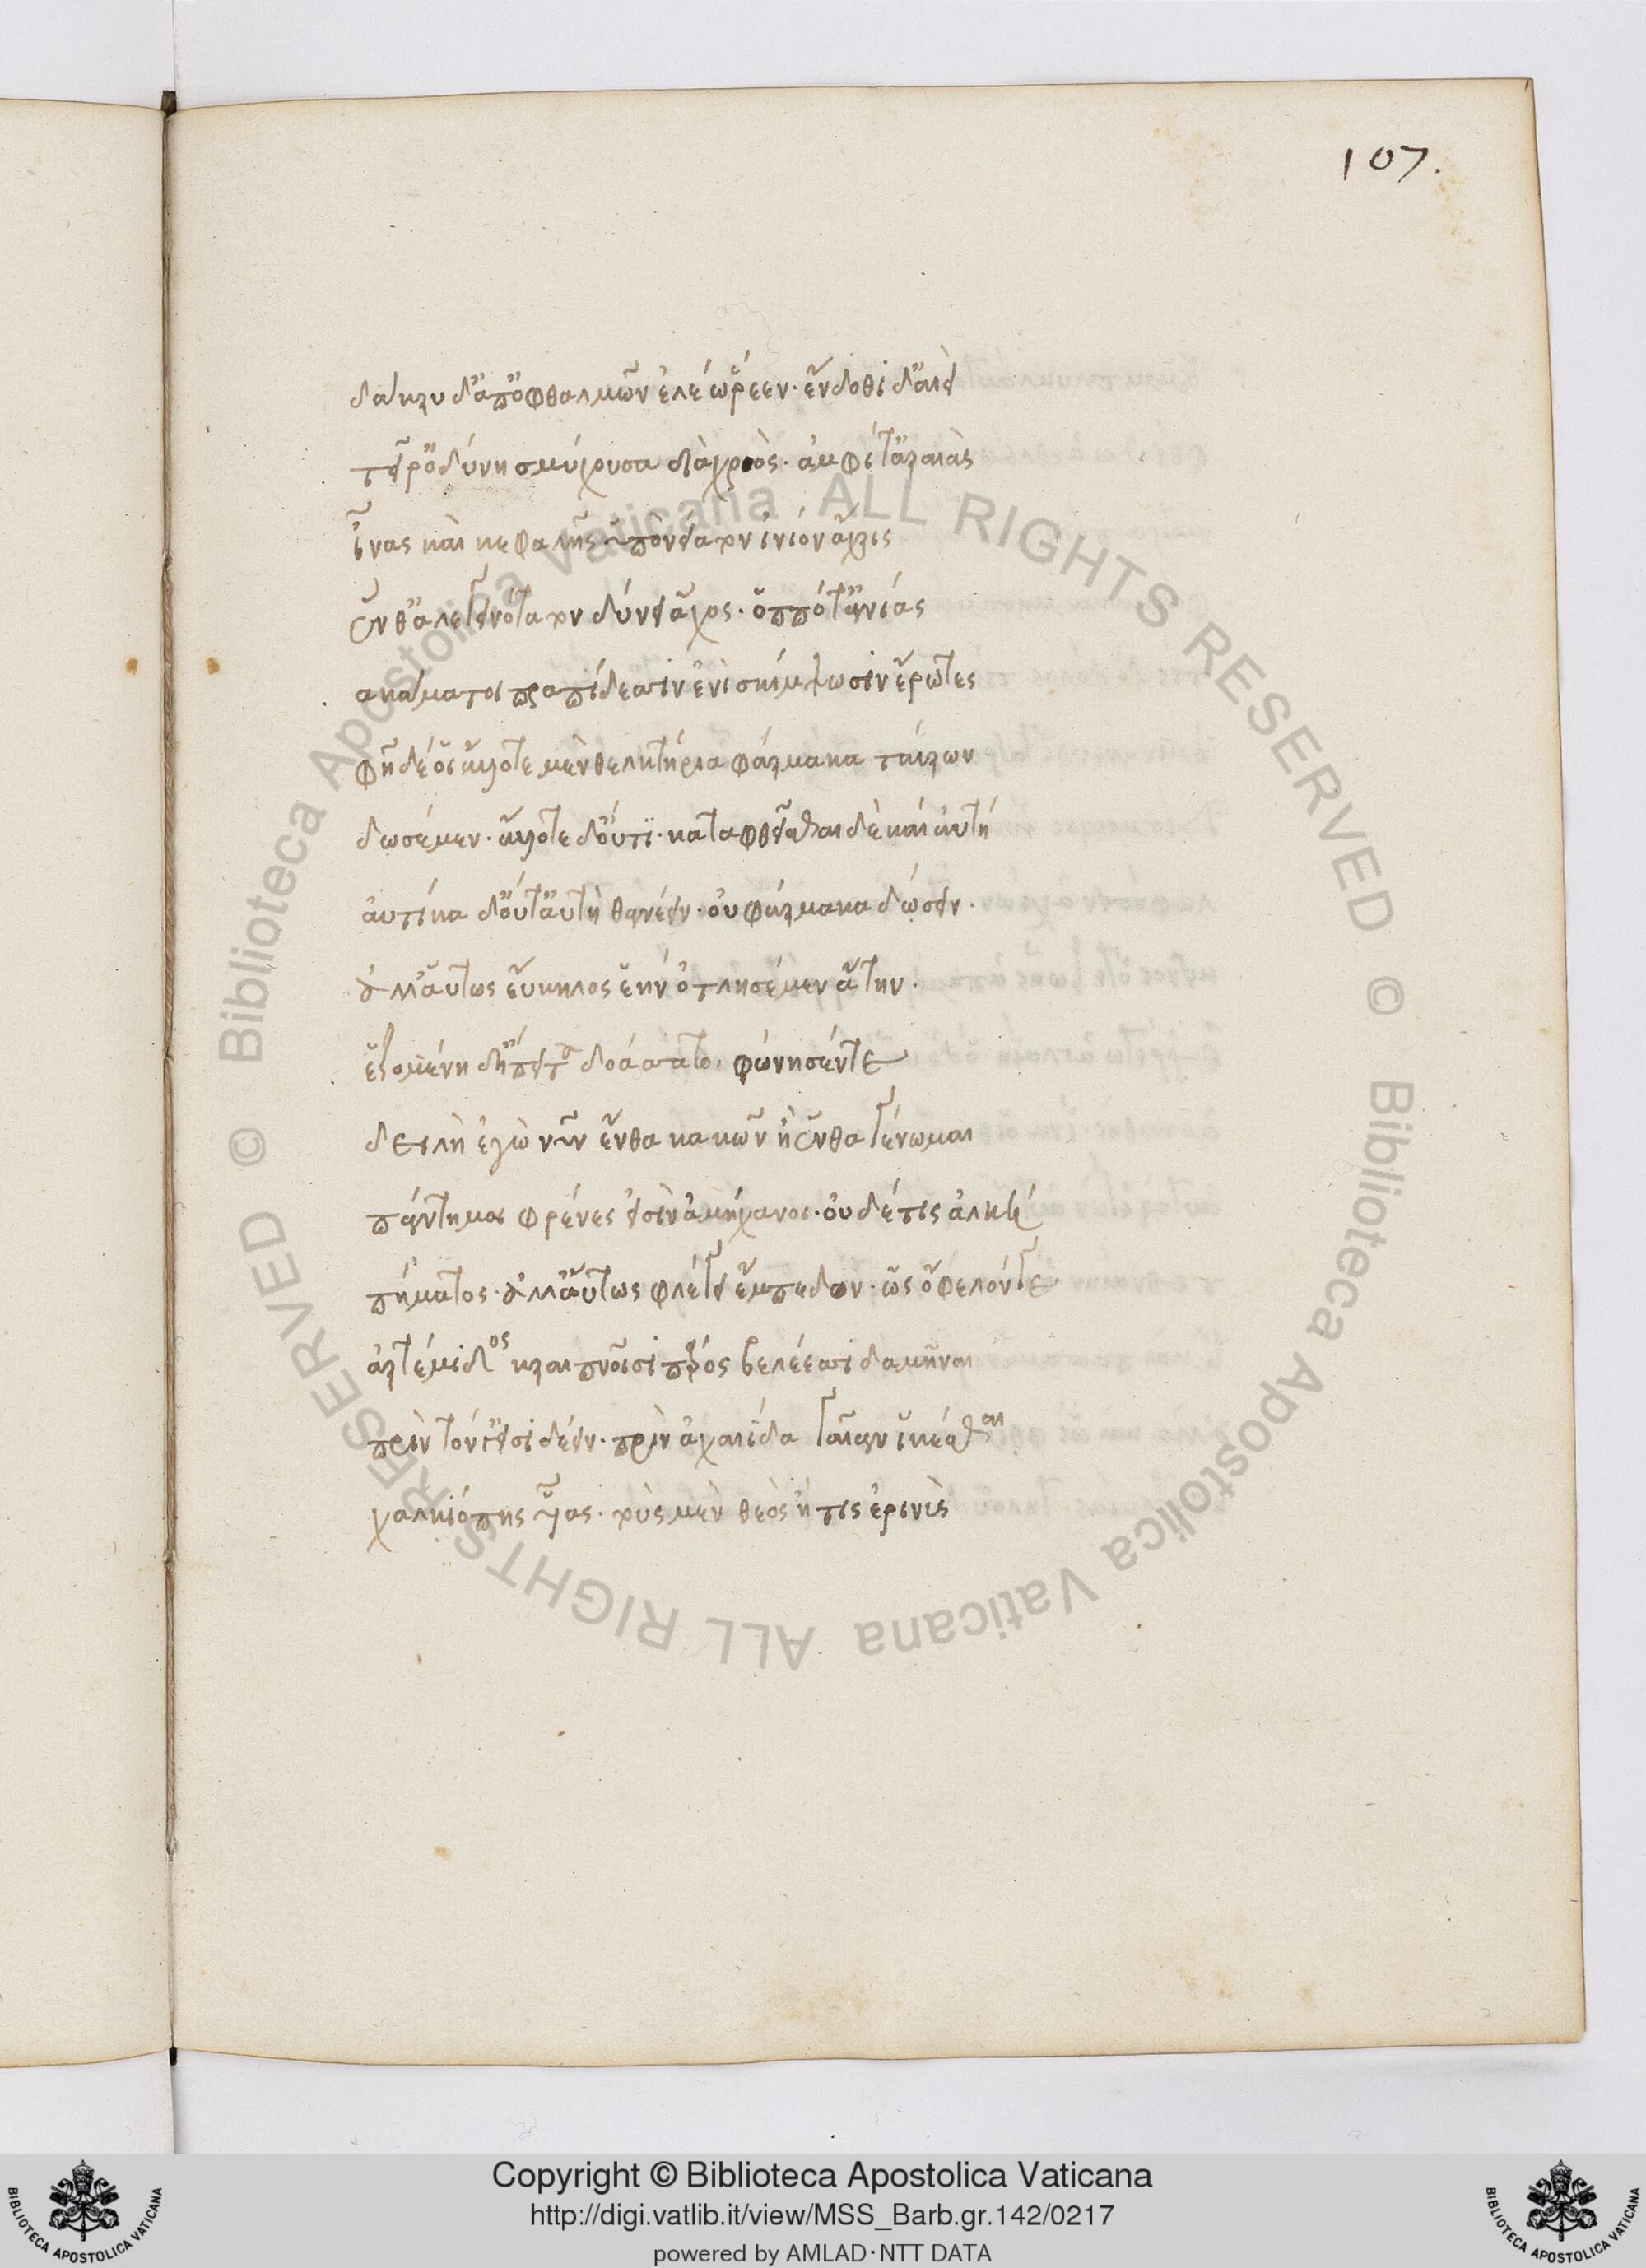 107.
δάκρυ δ' ἀπ' ὀφθαλμῶν ἐλέω ῥέεν· ἔνδοθι δ' αἰεὶ
τεῖρ' ὀδύνη σμύχουσα διὰ χροὸς· ἀμφί τ' ἀραιὰς
ἶνας καὶ κεφαλῆς ὑπὸ νείατον ἰνίον ἄχρις
ἔνθ' ἀλεγεινότατον δύνει ἄχος· ὁππότ' ἀνίας
ἀκάματοι πραπίδεσσιν ἐνὶ σκίμψωσιν ἔρωτες
φῆ δέ οἱ ἄλλοτε μὲν θελκτήρια φάρμακα ταύρων
δωσέμεν· ἄλλοτε δ' οὔτι· καταφθεῖσθαι δὲ καὶ αὐτή
αὐτίκα δ' οὔτ' αὐτὴ θανέειν· οὐ φάρμακα δώσειν·
ἀλλ' αὔτως εὔκηλος ἑὴν ὀτλησέμεν ἄτην·
ἑζομένη δ' ἤπειτα δοάσσατο· φώνησέν τε
δειλὴ ἐγὼ νῦν ἔνθα κακῶν ἢ ἔνθα γένωμαι
πάντῃ μοι φρένες εἰσὶν ἀμήχανοι· οὐδέ τις ἀλκή
πήματος· ἀλλ' αὔτως φλέγει ἔμπεδον· ὡς ὄφελόν γε
ἀρτέμιδος κραιπνοῖσι πάρος βελέεσσι δαμῆναι
πρὶν τόν γ' εἰσιδέειν· πρὶν ἀχαιίδα γαῖαν ἱκέσθαι
χαλκιόπης υἷας· τοὺς μὲν θεὸς ἤ τις ἐρινὺς
Copyright © Biblioteca Apostolica Vaticana
http://digi.vatlib.it/view/MSS_Barb.gr.142/0217
powered by AMLAD·NTT DATA